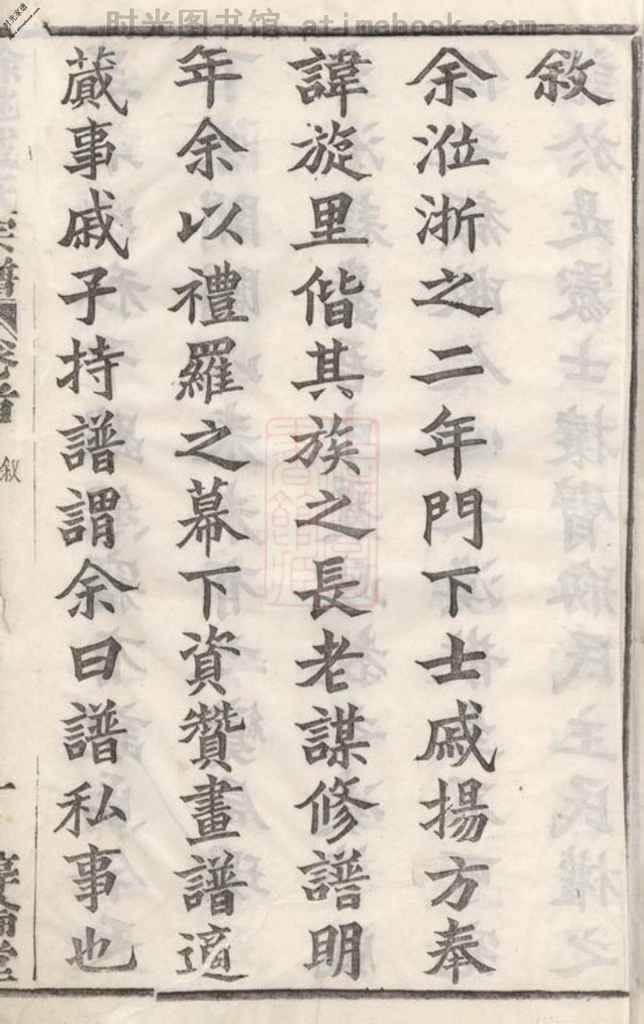 时光图书馆 atimebook.com
敘
余涖浙之二年門下士戚揚方奉
諱旋里偕其族之長老謀修譜明
年余以禮羅之幕下資贊畫譜適
蕆事戚子持譜謂余曰譜私事也
宗譜 卷首
叙
一